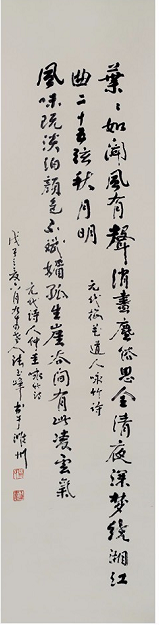 葉〻如闻風有聲消盡塵俗思全清夜深梦繞湘江
曲二十五弦秋月明
元代梅花道人咏竹诗
風味既淡泊颜色不斌媚孤生崖谷间有此凌雲氣
元代诗人仲圭咏竹诗
戊子之夏六月人玉峰书于潍州